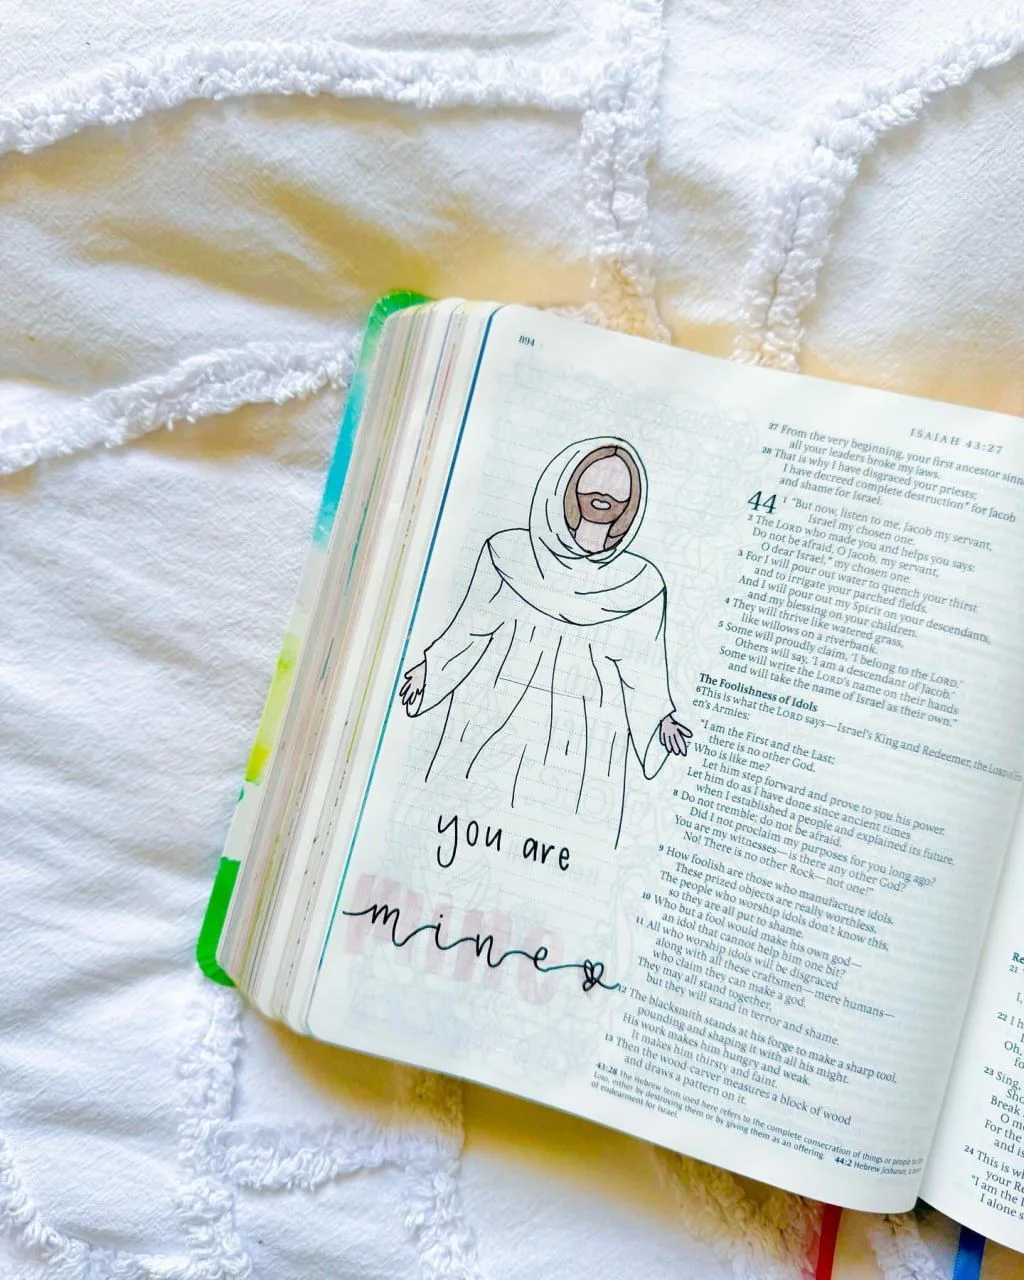 894
ISAIAH 43:27
27 From the very beginning, your first ancestor sinn
all your leaders broke my laws.
28 That is why I have disgraced your priests;
I have decreed complete destruction* for Jacob
and shame for Israel.
44 1 "But now, listen to me, Jacob my servant,
Israel my chosen one.
2 The LORD who made you and helps you says:
Do not be afraid, O Jacob, my servant,
O dear Israel,* my chosen one.
3 For I will pour out water to quench your thirst
and to irrigate your parched fields.
And I will pour out my Spirit on your descendants,
and my blessing on your children.
4 They will thrive like watered grass,
like willows on a riverbank.
5 Some will proudly claim, 'I belong to the LORD.'
Others will say, 'I am a descendant of Jacob.'
Some will write the LORD's name on their hands
and will take the name of Israel as their own."
The Foolishness of Idols
6 This is what the LORD says—Israel's King and Redeemer, the LORD of
en's Armies:
"I am the First and the Last;
there is no other God.
7 Who is like me?
Let him step forward and prove to you his power.
Let him do as I have done since ancient times
when I established a people and explained its future.
8 Do not tremble; do not be afraid.
Did I not proclaim my purposes for you long ago?
You are my witnesses—is there any other God?
No! There is no other Rock—not one!"
9 How foolish are those who manufacture idols.
These prized objects are really worthless.
The people who worship idols don't know this,
so they are all put to shame.
10 Who but a fool would make his own god—
an idol that cannot help him one bit?
11 All who worship idols will be disgraced
along with all these craftsmen—mere humans—
who claim they can make a god.
They may all stand together,
but they will stand in terror and shame.
12 The blacksmith stands at his forge to make a sharp tool,
pounding and shaping it with all his might.
His work makes him hungry and weak.
It makes him thirsty and faint.
13 Then the wood-carver measures a block of wood
and draws a pattern on it.
43:28 The Hebrew term used here refers to the complete consecration of things or people to the
LORD, either by destroying them or by giving them as an offering. 44:2 Hebrew Jeshurun, a term
of endearment for Israel.
you are
mine
Re
21
I,
22 I h
Oh,
fo
23 Sing,
Sho
Break
O m
For the
and is
24 This is wh
your Re
"I am the L
I alone s